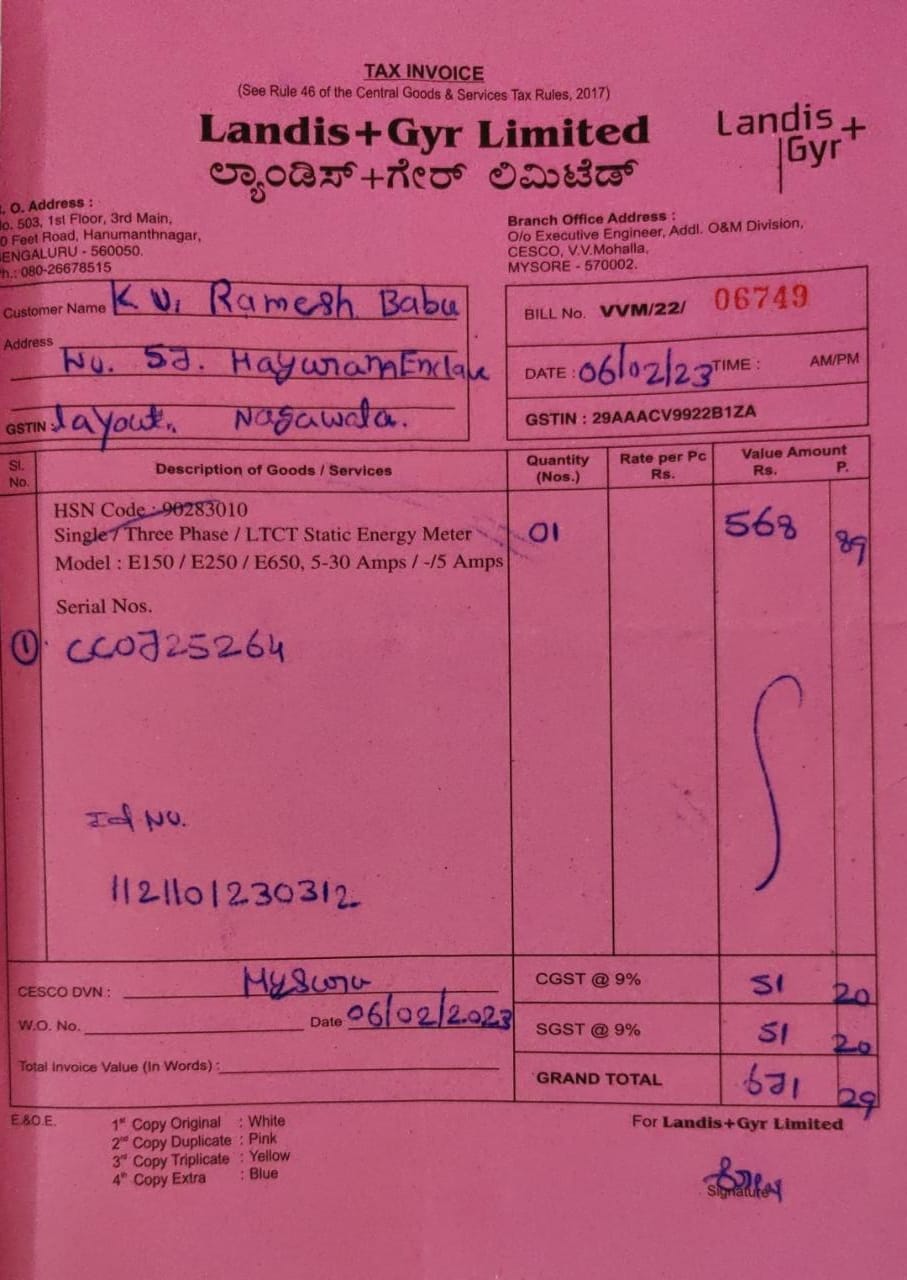 TAX INVOICE
(See Rule 46 of the Central Goods & Services Tax Rules, 2017)
Landis+Gyr Limited
ಲ್ಯಾಂಡಿಸ್+ಗೇರ್ ಲಿಮಿಟೆಡ್
Landis+
Gyr
. O. Address :
o. 503, 1st Floor, 3rd Main,
0 Feet Road, Hanumanthnagar,
ENGALURU - 560050.
h.: 080-26678515
Branch Office Address :
O/o Executive Engineer, Addl. O&M Division,
CESCO, V.V.Mohalla,
MYSORE - 570002.
Customer Name K. V. Ramesh Babu
Address
No. 57. Enclave
GSTIN : layout.
BILL No. VVM/22/ 06749
DATE : 06/02/23 TIME : AM/PM
GSTIN : 29AAACV9922B1ZA
Sl. No. Description of Goods / Services Quantity (Nos.) Rate per Pc Rs. Value Amount Rs. P.
HSN Code : 90283010
Single / Three Phase / LTCT Static Energy Meter 01 568 89
Model : E150 / E250 / E650, 5-30 Amps / -/5 Amps
Serial Nos.
1 CC0725264
Id No.
1121101230312
CESCO DVN : Mysore
W.O. No. Date 06/02/2023
Total Invoice Value (In Words) :
CGST @ 9% 51 20
SGST @ 9% 51 20
GRAND TOTAL 671 29
E.&O.E.
1st Copy Original : White
2nd Copy Duplicate : Pink
3rd Copy Triplicate : Yellow
4th Copy Extra : Blue
For Landis+Gyr Limited
Signature